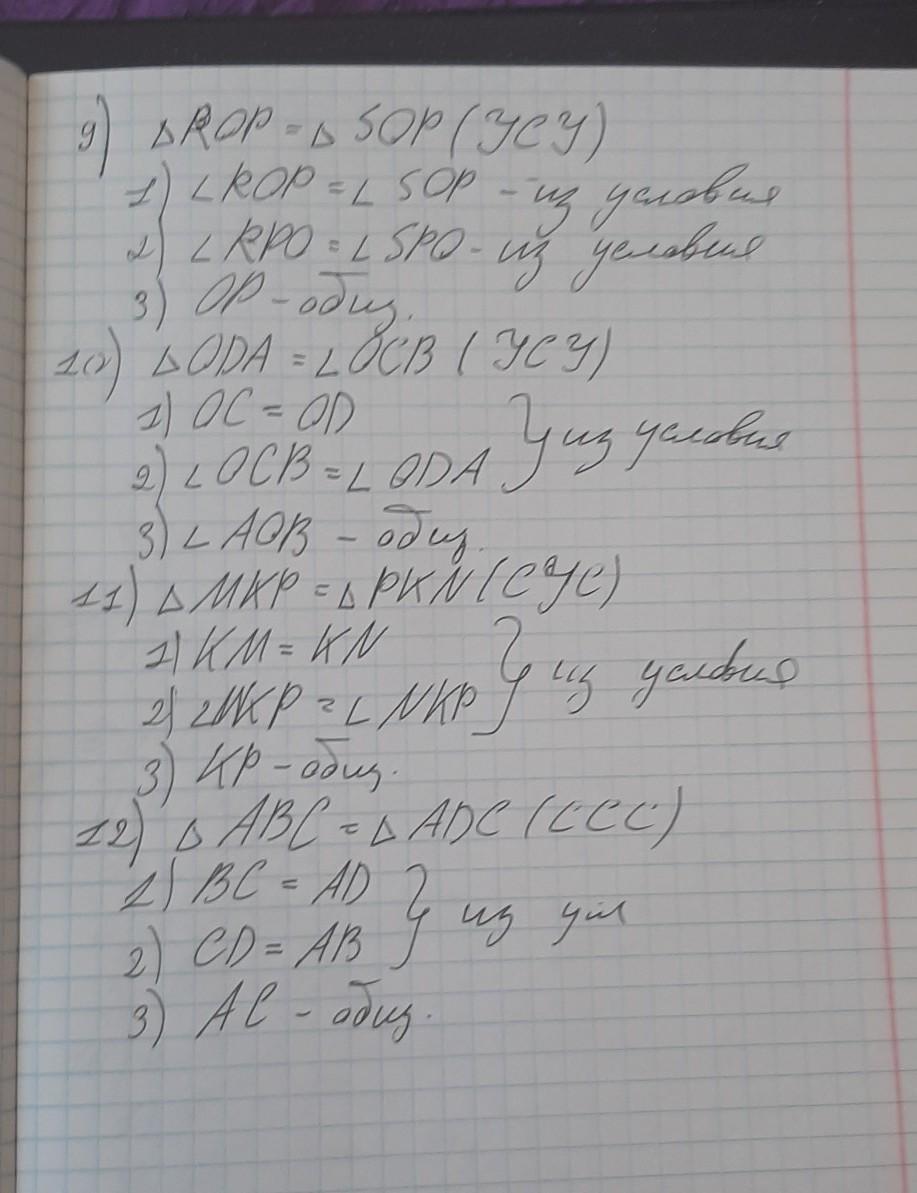 9) △ROP = △SOP (УСУ)
1) ∠ROP = ∠SOP - из условия
2) ∠RPO = ∠SPO - из условия
3) OP - общ.
10) △ODA = ∠OCB (УСУ)
1) OC = OD
2) ∠OCB = ∠ODA } из условия
3) ∠AOB - общ.
11) △MKP = △PKN (СУС)
1) KM = KN
2) ∠MKP = ∠NKP } из условия
3) KP - общ.
12) △ABC = △ADC (ССС)
1) BC = AD
2) CD = AB } из усл
3) AC - общ.